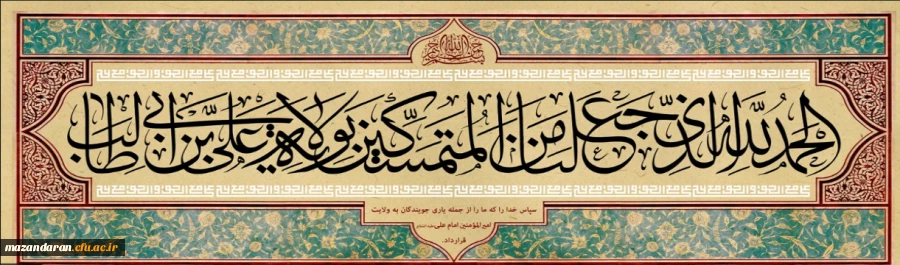 بسم الله الرحمن الرحیم
الحمد لله الذی جعلنا من المتمسکین بولایة علی بن ابی طالب
سپاس خدا را که ما را از جمله یاری جویندگان به ولایت
امیرالمؤمنین امام علی
قرارداد.
mazandaran.cfu.ac.ir